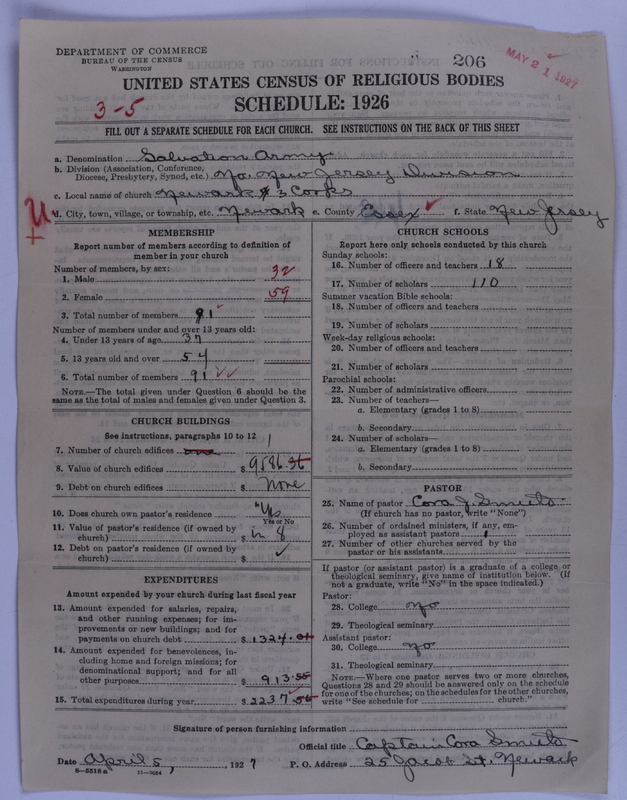 DEPARTMENT OF COMMERCE
BUREAU OF THE CENSUS
WASHINGTON
206
MAY 21 1927
UNITED STATES CENSUS OF RELIGIOUS BODIES
3-5
SCHEDULE: 1926
FILL OUT A SEPARATE SCHEDULE FOR EACH CHURCH. SEE INSTRUCTIONS ON THE BACK OF THIS SHEET
a. Denomination Salvation Army
b. Division (Association, Conference, Diocese, Presbytery, Synod, etc.) No. New Jersey Division
c. Local name of church Newark # 3 Corps
d. City, town, village, or township, etc. Newark e. County Essex f. State New Jersey
MEMBERSHIP
Report number of members according to definition of member in your church
Number of members, by sex:
1. Male 32
2. Female 59
3. Total number of members 91
Number of members under and over 13 years old:
4. Under 13 years of age 37
5. 13 years old and over 54
6. Total number of members 91
NOTE.—The total given under Question 6 should be the same as the total of males and females given under Question 3.
CHURCH BUILDINGS
See instructions, paragraphs 10 to 12
7. Number of church edifices one 1
8. Value of church edifices $ 9586.36
9. Debt on church edifices $ None
10. Does church own pastor's residence Yes
Yes or No
11. Value of pastor's residence (if owned by church) $ in 8
12. Debt on pastor's residence (if owned by church) $
EXPENDITURES
Amount expended by your church during last fiscal year
13. Amount expended for salaries, repairs, and other running expenses; for improvements or new buildings; and for payments on church debt $ 1324.01
14. Amount expended for benevolences, including home and foreign missions; for denominational support; and for all other purposes $ 913.55
15. Total expenditures during year $ 2237.56
CHURCH SCHOOLS
Report here only schools conducted by this church
Sunday schools:
16. Number of officers and teachers 18
17. Number of scholars 110
Summer vacation Bible schools:
18. Number of officers and teachers
19. Number of scholars
Week-day religious schools:
20. Number of officers and teachers
21. Number of scholars
Parochial schools:
22. Number of administrative officers
23. Number of teachers—
a. Elementary (grades 1 to 8)
b. Secondary
24. Number of scholars—
a. Elementary (grades 1 to 8)
b. Secondary
PASTOR
25. Name of pastor Cora J. Smeeto
(If church has no pastor, write "None")
26. Number of ordained ministers, if any, employed as assistant pastors 1
27. Number of other churches served by the pastor or his assistants
If pastor (or assistant pastor) is a graduate of a college or theological seminary, give name of institution below. (If not a graduate, write "No" in the space indicated.)
Pastor:
28. College no
29. Theological seminary
Assistant pastor:
30. College no
31. Theological seminary
NOTE.—Where one pastor serves two or more churches, Questions 28 and 29 should be answered only on the schedule for one of the churches; on the schedules for the other churches, write "See schedule for church."
Signature of person furnishing information
Official title Captain Cora Smeeto
Date April 5, 1927 P. O. Address 25 Jacob St. Newark
8—5518a 11—9084